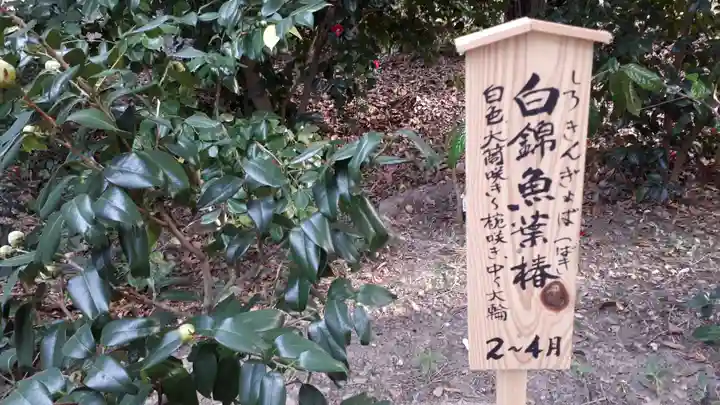 しろきんぎょば つばき
白錦魚葉椿
白色、大筒咲き〜椀咲き、中〜大輪
2〜4月